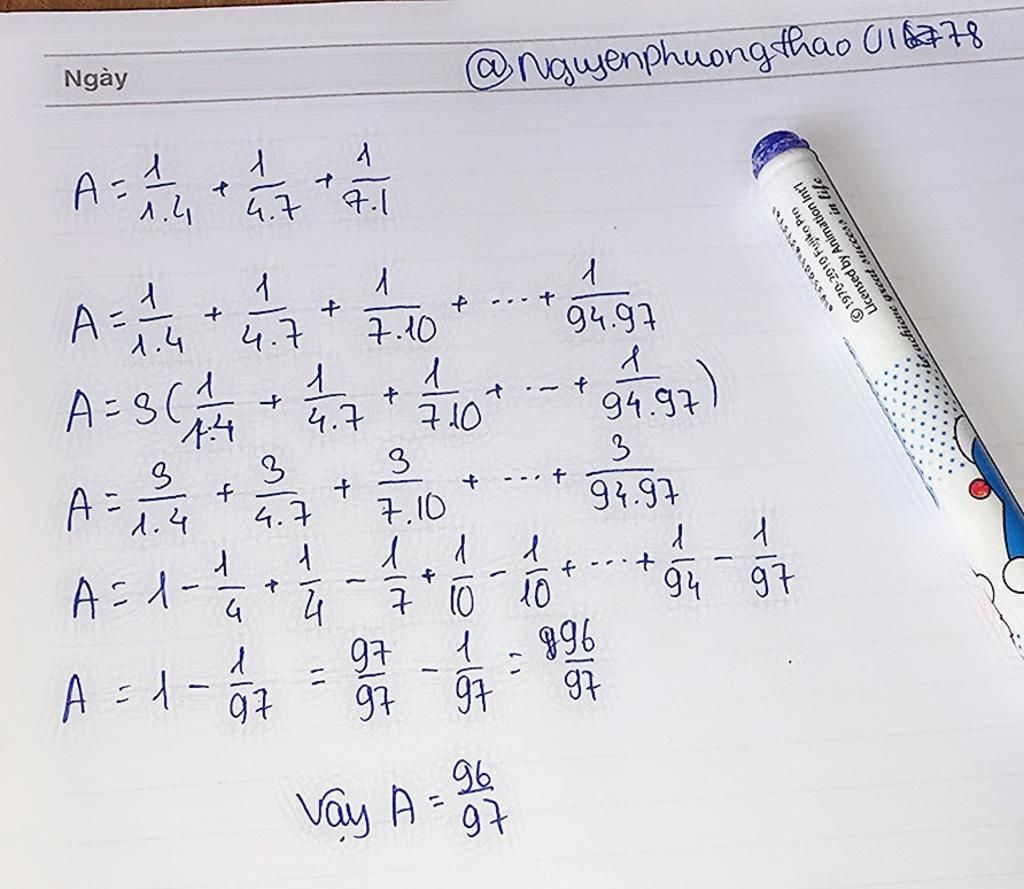 Ngày
@nguyenphuongthao01678
A = 1/1.4 + 1/4.7 + 1/7.1
A = 1/1.4 + 1/4.7 + 1/7.10 + ... + 1/94.97
A = 3(1/1.4 + 1/4.7 + 1/7.10 + ... + 1/94.97)
A = 3/1.4 + 3/4.7 + 3/7.10 + ... + 3/94.97
A = 1 - 1/4 + 1/4 - 1/7 + 1/10 - 1/10 + ... + 1/94 - 1/97
A = 1 - 1/97 = 97/97 - 1/97 = 96/97
Vậy A = 96/97
© 1970-2010 Fujiko Pro
Licensed by Animation Int'l
to achieve great success in life